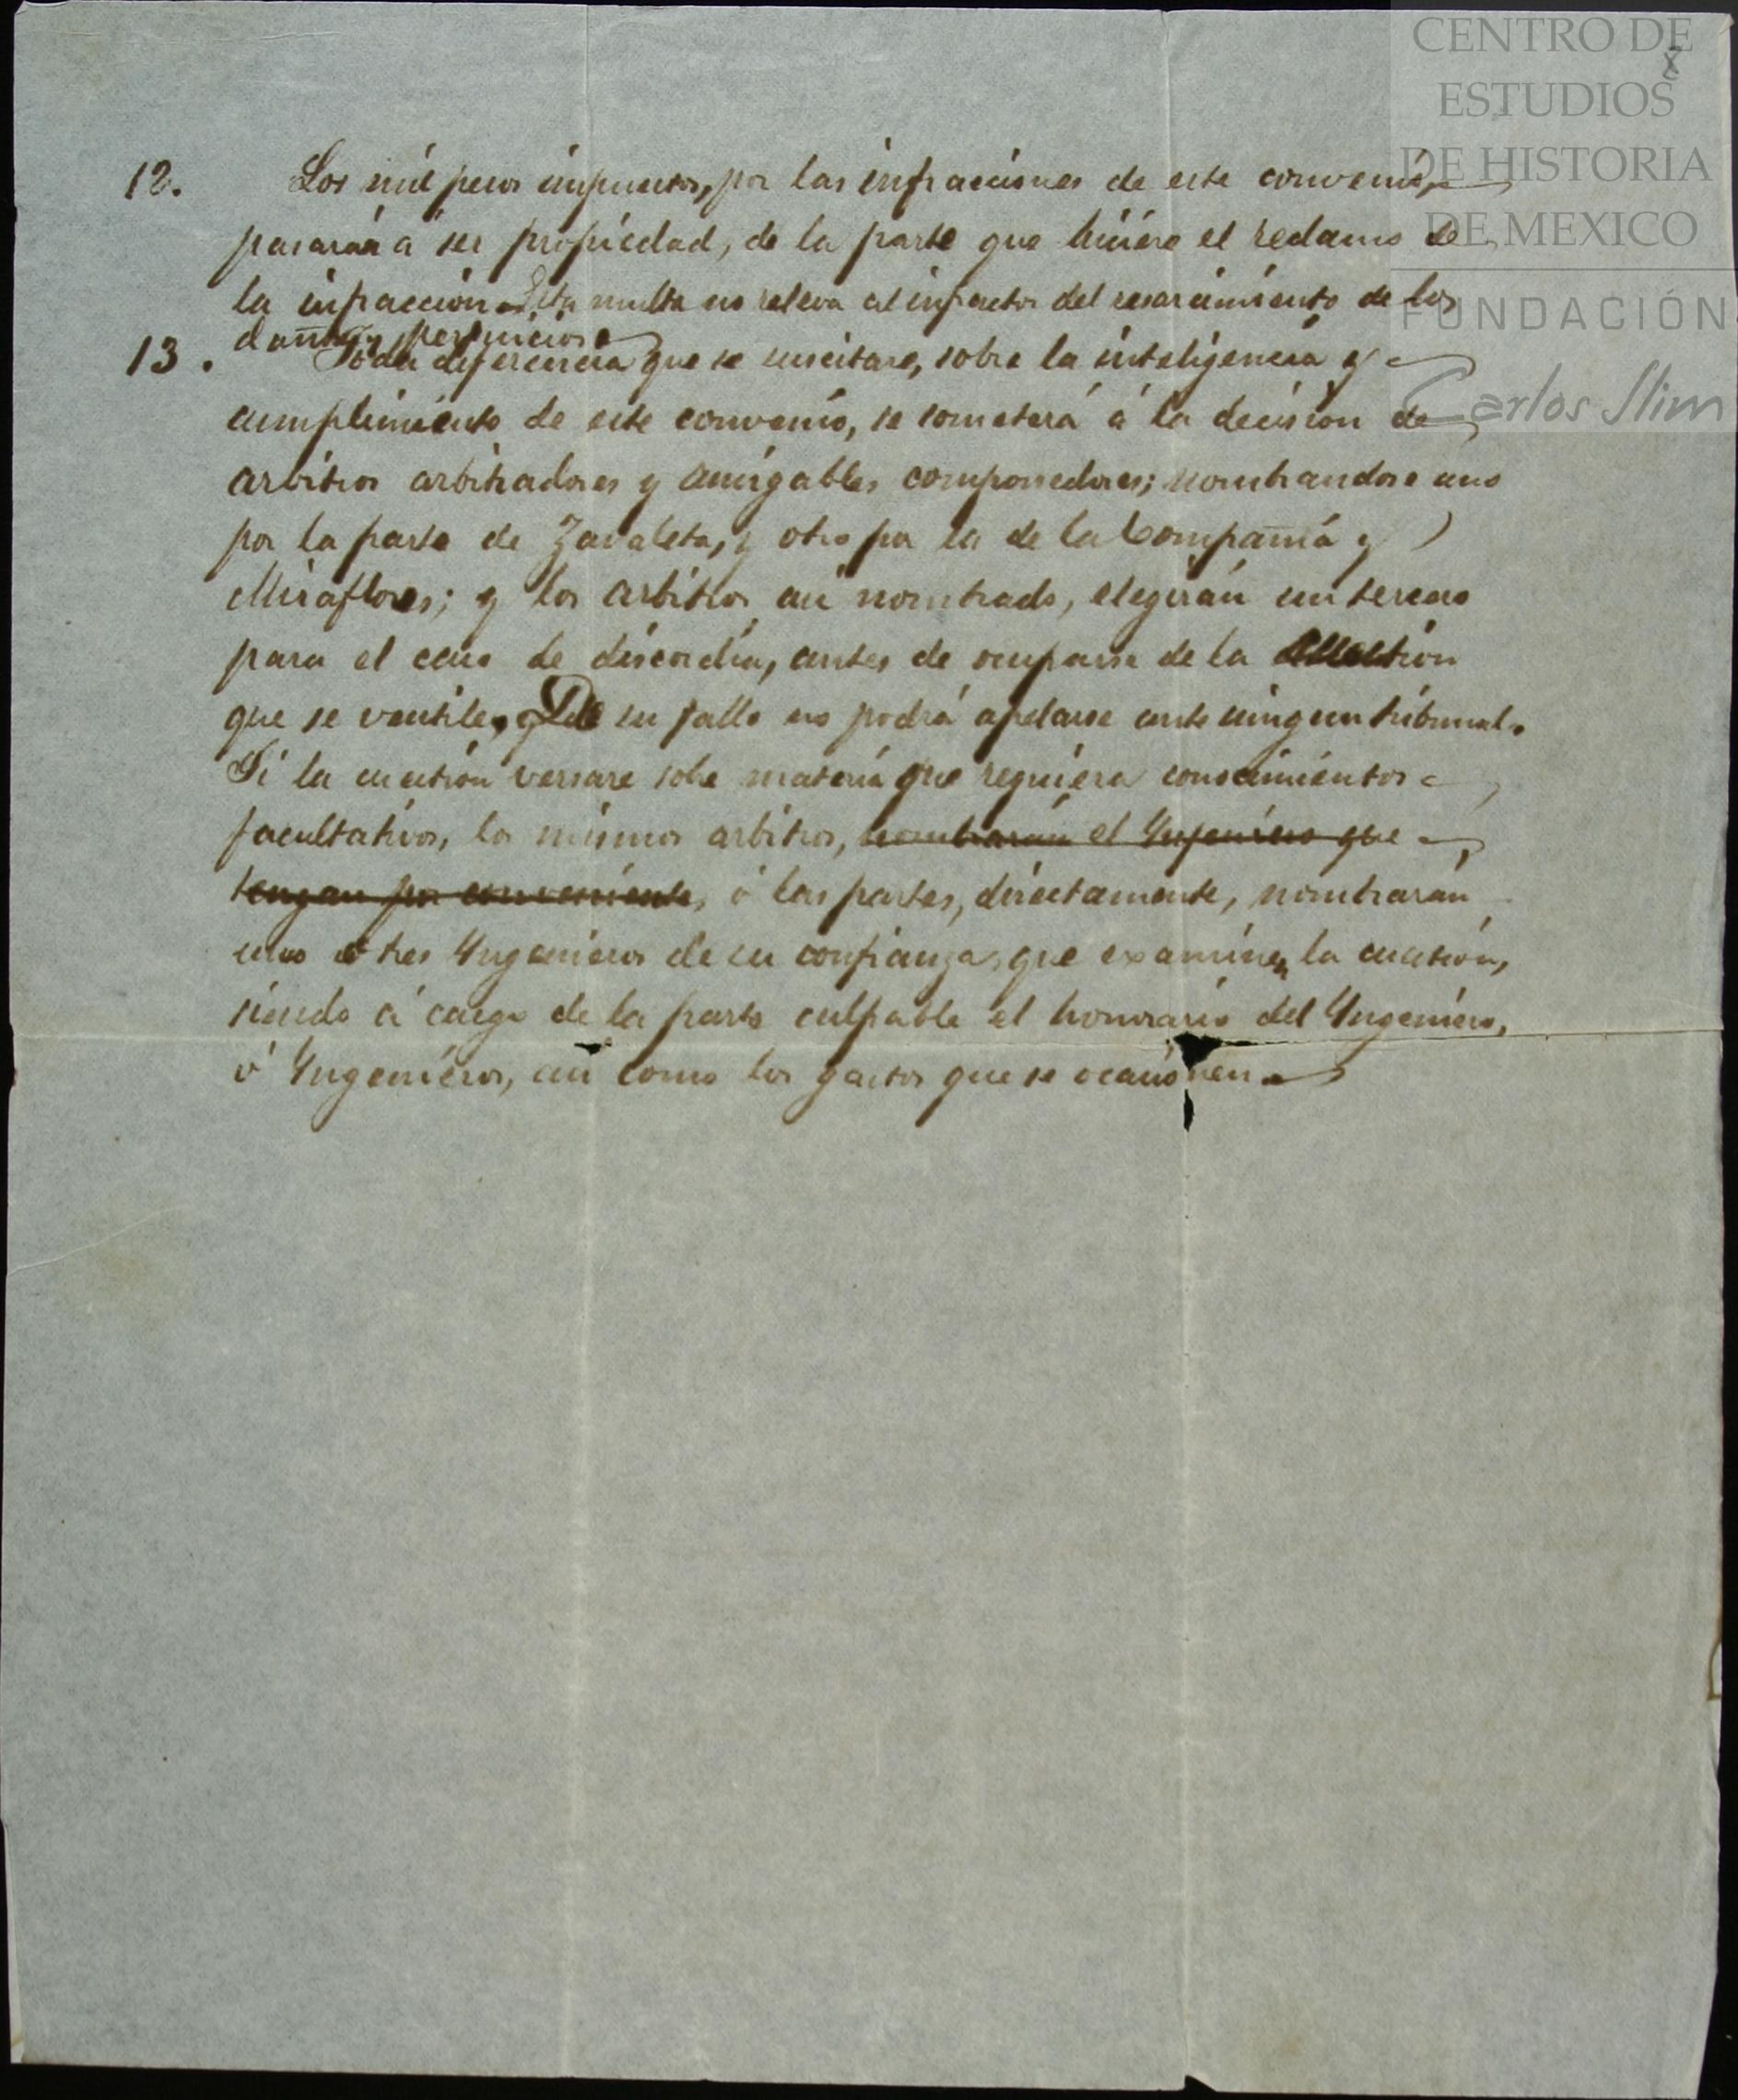 CENTRO DE
ESTUDIOS
DE HISTORIA
DE MEXICO
FUNDACIÓN
Carlos Slim
8
12. Los mil pesos impuestos, por las infracciones de este convenio,
pasarán á ser propiedad, de la parte que hiciere el reclamo de
la infraccion. Esta multa no releva al infractor del resarcimiento de los
daños y perjuicios.
13. Toda diferencia que se suscitare, sobre la inteligencia y
cumplimiento de este convenio, se someterá á la decision de
arbitros arbitradores y amigables componedores; nombrandose uno
por la parte de Zavaleta, y otro por la de la Compañia y
Miraflores; y los arbitros asi nombrado, elegirán un tercero
para el caso de discordia, antes de ocuparse de la cuestion
que se ventile, y De su fallo no podrá apelarse ante ningun tribunal.
Si la cuestion versare sobre materia que requiera conocimientos
facultativos, los mismos arbitros, nombrarán el Yngeniero que
tengan por conveniente, ó las partes, directamente, nombrarán
uno ó tres Yngenieros de su confianza, que examinen la cuestion,
siendo á cargo de la parte culpable el honorario del Yngeniero,
ó Yngenieros, asi como los gastos que se ocasionen.